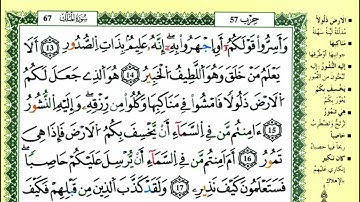 67 سُورَةُ الْمُلْكِ
حِزْب 57
وَأَسِرُّوا۟ قَوْلَكُمْ أَوِ ٱجْهَرُوا۟ بِهِۦٓ إِنَّهُۥ عَلِيمٌۢ بِذَاتِ ٱلصُّدُورِ 13 أَلَا
يَعْلَمُ مَنْ خَلَقَ وَهُوَ ٱللَّطِيفُ ٱلْخَبِيرُ 14 هُوَ ٱلَّذِى جَعَلَ لَكُمُ
ٱلْأَرْضَ ذَلُولًا فَٱمْشُوا۟ فِى مَنَاكِبِهَا وَكُلُوا۟ مِن رِّزْقِهِۦ وَإِلَيْهِ ٱلنُّشُورُ
15 ءَأَمِنتُم مَّن فِى ٱلسَّمَآءِ أَن يَخْسِفَ بِكُمُ ٱلْأَرْضَ فَإِذَا هِىَ
تَمُورُ 16 أَمْ أَمِنتُم مَّن فِى ٱلسَّمَآءِ أَن يُرْسِلَ عَلَيْكُمْ حَاصِبًا
فَسَتَعْلَمُونَ كَيْفَ نَذِيرِ 17 وَلَقَدْ كَذَّبَ ٱلَّذِينَ مِن قَبْلِهِمْ فَكَيْفَ
الأرض ذلولا
مناكبها
يخسف بكم
تمور
حاصبا